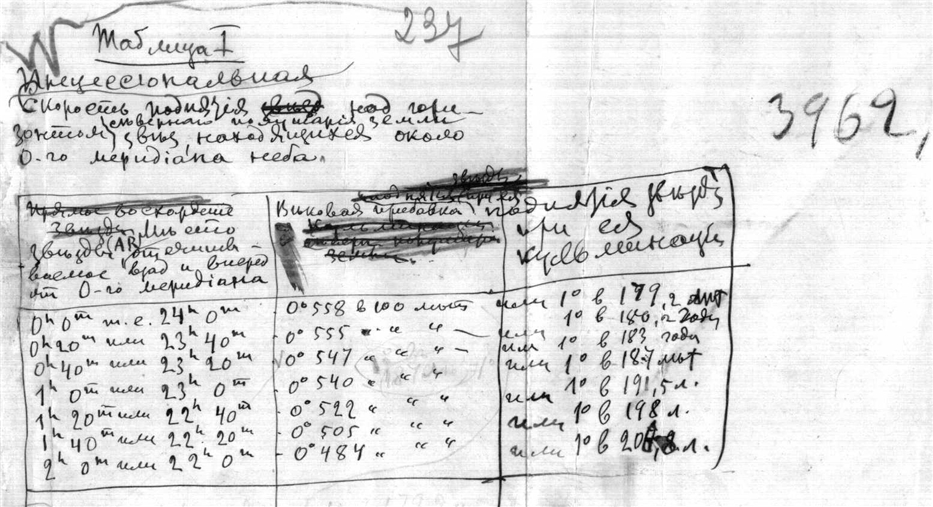 237
Таблица I
Прецессиональная
скорость поднятія над гори-
зонтом сѣвернаго полушарія земли
звѣзд находящихся около
0-го меридіана неба.
3969,
Мѣсто
звѣзды (AR) отсчиты-
ваемое взад и вперед
от 0-го меридіана
Вѣковая прибавка поднятія звѣзды
при ея
кульминаціи
0ʰ 0ᵐ т.е. 24ʰ 0ᵐ 0°558 в 100 лѣт или 1° в 179,2 лѣт
0ʰ 20ᵐ или 23ʰ 40ᵐ 0°555 " " " или 1° в 180,2 году
0ʰ 40ᵐ или 23ʰ 20ᵐ 0°547 " " " или 1° в 183 года
1ʰ 0ᵐ или 23ʰ 0ᵐ 0°540 " " " или 1° в 187 лѣт
1ʰ 20ᵐ или 22ʰ 40ᵐ 0°522 " " " или 1° в 191,5 л.
1ʰ 40ᵐ или 22ʰ 20ᵐ 0°505 " " " или 1° в 198 л.
2ʰ 0ᵐ или 22ʰ 0ᵐ 0°484 " " " или 1° в 206,8 л.